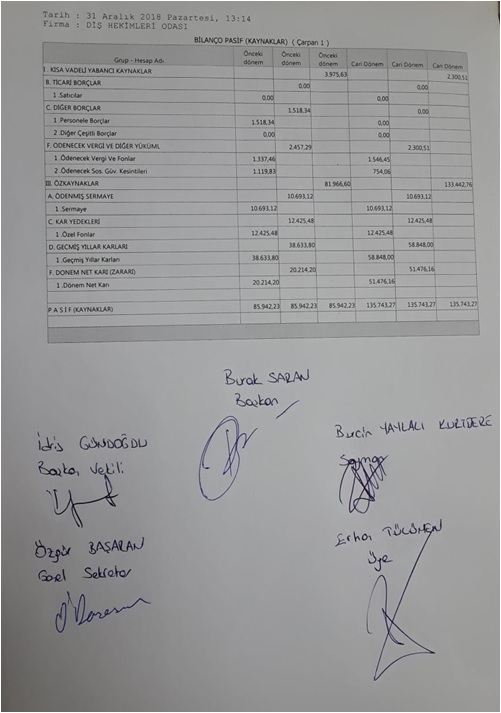 Tarih : 31 Aralık 2018 Pazartesi, 13:14
Firma : DİŞ HEKİMLERİ ODASI
BİLANÇO PASİF (KAYNAKLAR) ( Çarpan 1 )
Grup - Hesap Adı Önceki dönem Önceki dönem Önceki dönem Cari Dönem Cari Dönem Cari Dönem
I. KISA VADELİ YABANCI KAYNAKLAR 3.975,63 2.300,51
B. TİCARİ BORÇLAR 0,00 0,00
1 .Satıcılar 0,00 0,00
C. DİĞER BORÇLAR 1.518,34 0,00
1 .Personele Borçlar 1.518,34 0,00
2 .Diğer Çeşitli Borçlar 0,00 0,00
F. ÖDENECEK VERGİ VE DİĞER YÜKÜML 2.457,29 2.300,51
1 .Ödenecek Vergi Ve Fonlar 1.337,46 1.546,45
2 .Ödenecek Sos. Güv. Kesintileri 1.119,83 754,06
III. ÖZKAYNAKLAR 81.966,60 133.442,76
A. ÖDENMİŞ SERMAYE 10.693,12 10.693,12
1 .Sermaye 10.693,12 10.693,12
C. KAR YEDEKLERİ 12.425,48 12.425,48
1 .Özel Fonlar 12.425,48 12.425,48
D. GEÇMİŞ YILLAR KARLARI 38.633,80 58.848,00
1 .Geçmiş Yıllar Karları 38.633,80 58.848,00
F. DÖNEM NET KARI (ZARARI) 20.214,20 51.476,16
1 .Dönem Net Karı 20.214,20 51.476,16
P A S İ F (KAYNAKLAR) 85.942,23 85.942,23 85.942,23 135.743,27 135.743,27 135.743,27
Burak SARAN
Başkan
İdris GÜNDOĞDU
Başkan Vekili
Burcin YAYLALI KURTDERE
Sayman
Özgür BAŞARAN
Genel Sekreter
Erhan TÜLÜMEN
Üye